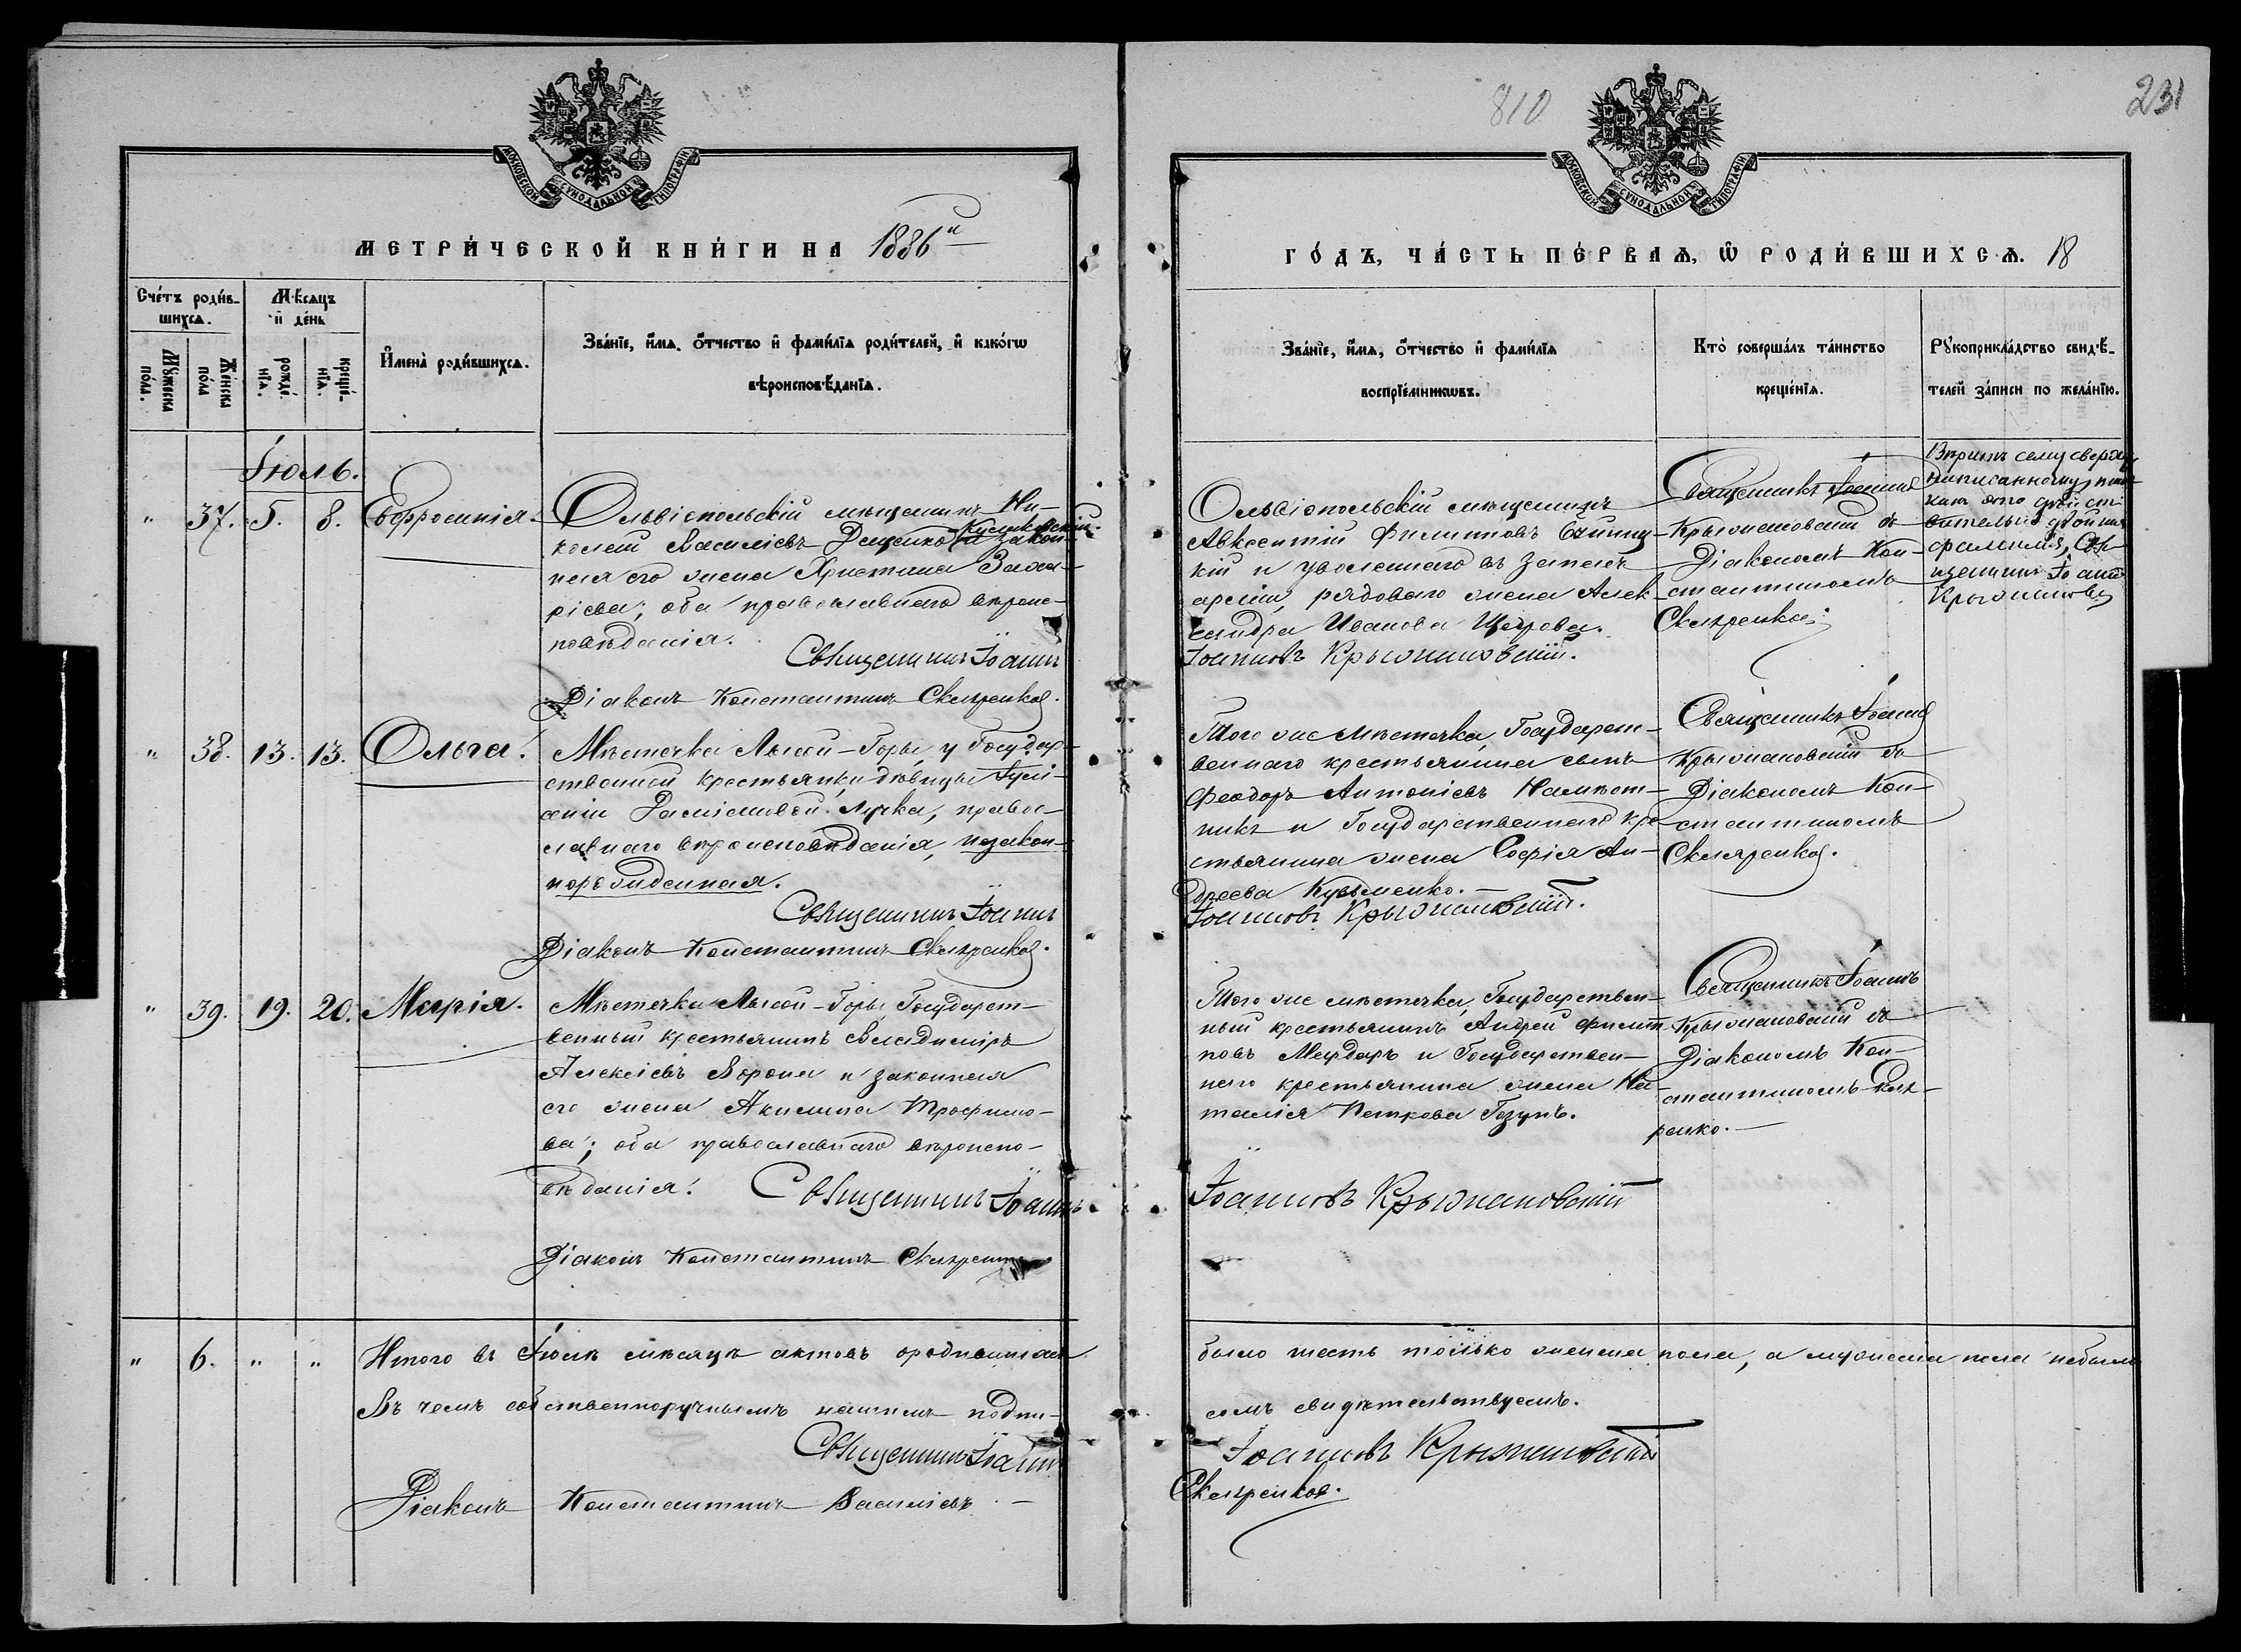 810
231
МОСКОВСКОЙ СѴНОДАЛЬНОЙ ТИПОГРАФІИ
МОСКОВСКОЙ СѴНОДАЛЬНОЙ ТИПОГРАФІИ
МЕТРИ́ЧЕСКОЙ КНИ́ГИ НА 1886й
ГО́ДЪ, ЧА́СТЬ ПЕ́РВАѦ, Ѡ РОДИ́ВШИХСѦ. 18
Сче́тъ роди́в-
шихсѧ.
Мꙋжеска по́ла.
Же́нска по́ла
Мѣ́сѧцъ и де́нь
рожде́-нїѧ.
креще́-нїѧ.
И҆мена̀ роди́вшихсѧ.
Зва́нїе, и҆́мѧ, ѻ҆́тчество и҆ фами́лїѧ роди́телей, и҆ како́гѡ
вѣроисповѣ́данїѧ.
Зва́нїе, и҆́мѧ, ѻ҆́тчество и҆ фами́лїѧ
воспрїе́мникѡвъ.
Кто̀ соверша́лъ та́инство
креще́нїѧ.
Рꙋкоприкла́дство свидѣ́-
телей за́писи по жела́нїю.
Іюль.
" 37. 5. 8. Евфросинія.
Ольвіопольскій мѣщанинъ Ни-
колай Василіевъ Деценко и закон-
ная его жена Христина Заха-
ріева; оба православнаго вѣроис-
повѣданія.
Священникъ Іоаннъ
Діаконъ Константинъ Скляренко.
Ольвіопольскій мѣщанинъ
Авксентій Филипповъ
кій и уволеннаго въ запасъ
арміи, рядоваго жена Алек-
сандра Иванова
Іоанновъ Крыжановскій.
Священникъ Іоаннъ
Крыжановскій съ
Діакономъ Кон-
стантиномъ
Скляренко.
Крыжановскій
" 38. 13. 13. Ольга.
Мѣстечка Лысой-Горы, у Государ-
ственной крестьянки, дѣвицы
Лучка, правос-
лавнаго вѣроисповѣданія, незакон-
норожденная.
Священникъ Іоаннъ
Діаконъ Константинъ Скляренко.
Того же мѣстечка, Государст-
веннаго крестьянина сынъ
Феодоръ Антоніевъ
никъ и Государственнаго кре-
стьянина жена Софія Ан-
дреева Кузьменко.
Іоанновъ Крыжановскій.
Священникъ Іоаннъ
Крыжановскій съ
Діакономъ Кон-
стантиномъ
Скляренко.
" 39. 19. 20. Марія.
Мѣстечка Лысой-Горы, Государст-
венный крестьянинъ Владиміръ
Алексіевъ Ворона и законная
его жена Акилина Трофимо-
ва; оба православнаго вѣроиспо-
вѣданія. Священникъ Іоаннъ
Діаконъ Константинъ Скляренко
Того же мѣстечка, Государствен-
ный крестьянинъ Андрей Филип-
повъ Мардаръ и Государствен-
наго крестьянина жена На-
талія Петрова Гезунъ.
Іоанновъ Крыжановскій
Священникъ Іоаннъ
Крыжановскій съ
Діакономъ Кон-
стантиномъ Скля-
ренко.
" 6. " " Итого въ Іюлѣ мѣсяцѣ актовъ о родившихся
было шесть только женска пола, а мужеска пола небыло
Въ чемъ собственноручнымъ нашимъ подпи-
сомъ свидѣтельствуемъ.
Священникъ Іоаннъ
Іоанновъ Крыжановскій
Діаконъ Константинъ Василіевъ
Скляренко.